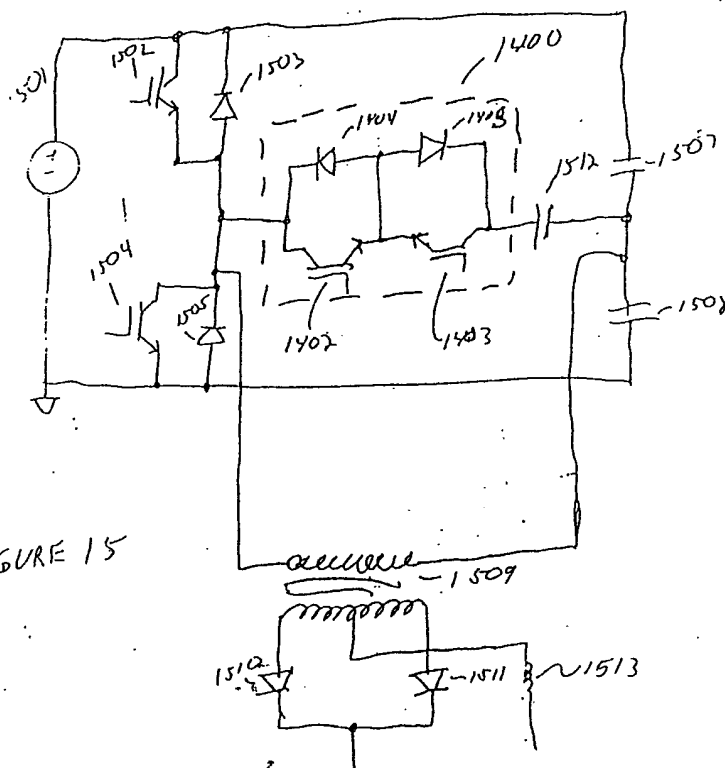 1400
1502
1503
1501
1404
1405
1512
1507
1504
1505
1402
1403
1508
FIGURE 15
1509
1510
1511
1513